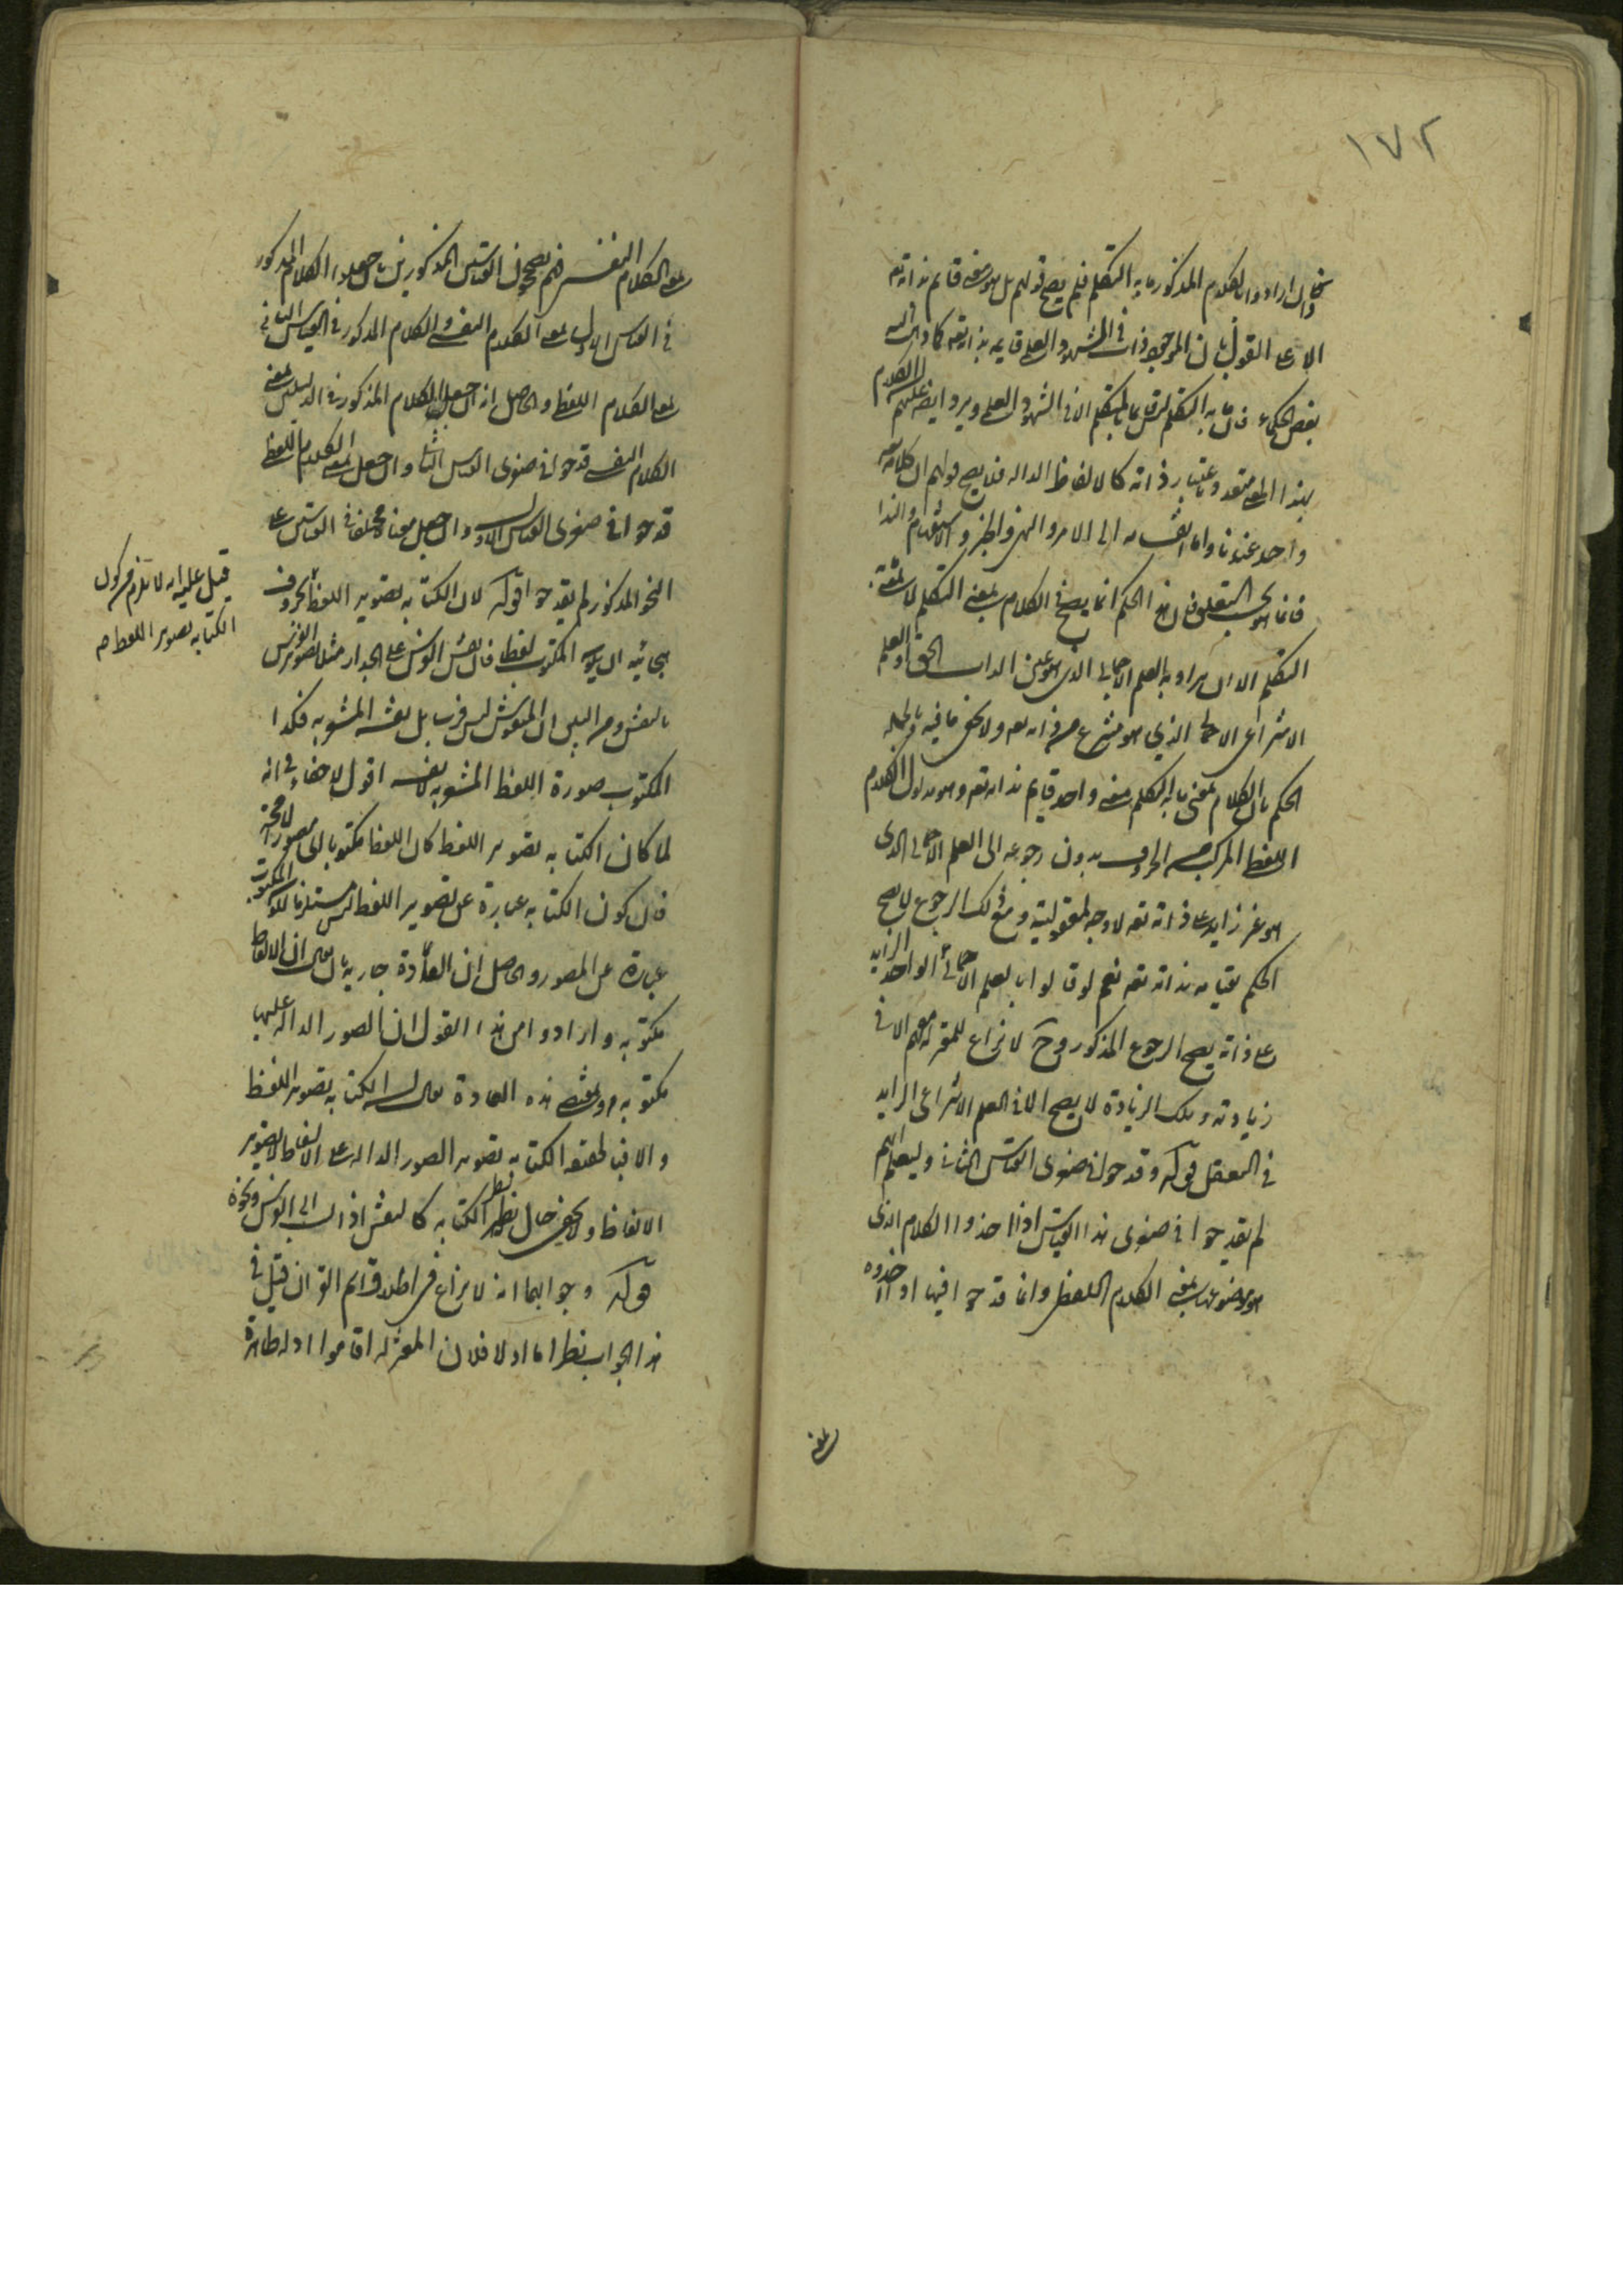 ١٧٢
وان ارادوا بالكلام المذكور ما به التكلم فلم يصح قولهم بل هو معنى قائم بذاته تعالى
الا على القول بان المرجح ذات في الشهود العلمي قايمه بذاته تعالى كما ذهب اليه
بعض الحكماء فان ما به التكلم ليس قايما بالمتكلم الا في الشهود العلمي ويرد ايضا عليهم ان الكلام
بهذا المعنى متعدد باعتبار ذاته كالالفاظ الداله فلا يصح قولهم ان كلامه
واحد عندنا واما انقسامه الى الامر والنهي والخبر والاستفهام والندا
فانما هو بحسب التعلق فان هذا الحكم انما يصح في الكلام بمعنى التكلم لا بمعنى ما به
التكلم الا ان يراد به العلم الاجمالي الذي هو عين الذات الحق او العلم
الاشراقي الاجمالي الذي هو منتزع من ذاته تعالى ولا يخفى ما فيه وبالجمله
الحكم بان الكلام بمعنى ما به التكلم معنى واحد قايم بذاته تعالى وهو مدلول الكلام
اللفظي المركب من الحروف بدون رجوعه الى العلم الاجمالي الذي
هو غير زايد على ذاته تعالى لا وجه لمعقوليته ومع ذلك الرجوع لا يصح
الحكم بقيامه بذاته تعالى نعم لو قالوا ان بعلم الاجمالي الواحد الزايد
على ذاته يصح الرجوع المذكور وح لا نزاع للمعتزله معهم الا في
زيادته وتلك الزيادة لا يصح الا في العلم الاشراقي الزايد
في التعقل قوله وقد حوا في صغرى القياس الثاني وليعلم انهم
لم يقدحوا في صغرى هذا القياس اذا اخذوا الكلام الذي
هو موضوعها بمعنى الكلام اللفظي وانما قدحوا فيها اذا اخذوه
بمعنى
بمعنى الكلام النفسي فهم يصححون القياسين المذكورين بان جعلوا الكلام المذكور
في القياس الاول بمعنى الكلام النفسي والكلام المذكور في القياس الثاني
بمعنى الكلام اللفظي والحاصل انه ان جعل الكلام المذكور في الدليلين بمعنى
الكلام النفسي قدحوا في صغرى القياس الثاني وان جعل بمعنى الكلام اللفظي
قدحوا في صغرى القياس الاول وان جعل معناه مختلفا في القياسين على
النحو المذكور لم يقدحوا قوله لان الكتابه تصوير اللفظ بحروف
هجائيه ان المكتوب لفظا فان نقش الفرس على الجدار مثلا تصوير الفرس
بالنقش ومن البين ان المنقوش ليس فرسا بل نقشه المشوبه فكذا
المكتوب صورة اللفظ المشوبه لا نفسه اقول لا خفاء في انه
لما كان الكتابه تصوير اللفظ كان اللفظ مكتوبا اي مصورا لا محة
فان كون الكتابه عبارة عن تصوير اللفظ ليس مستلزما لكون المكتوب
عبارة عن المصور والحاصل ان العادة جاريه بان يقال ان الالفاظ
مكتوبه وارادوا من هذا القول ان الصور الداله عليها
مكتوبه وبمقتضى هذه العادة يقال ان الكتابه تصوير اللفظ
والا فبالحقيقة الكتابه تصوير الصور الداله على الالفاظ لا تصوير
الالفاظ ولا يخفى حال نظير الكتابه كالنقش اذا نسب الى الفرس ونحوه
قوله وجوابها انه لا نزاع في اطلاق اسم القران قيل في
هذا الجواب نظر اما اولا فلان المعتزله اقاموا ادله ظاهرة
قيل عليه انه لا يلزم من كون
الكتابه تصوير اللفظ